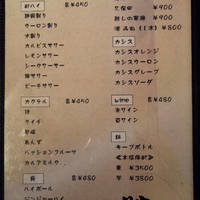 酎ハイ 各¥450
ウーロン割り
水割り
カルピスサワー
レモンサワー
シークワーサー
梅サワー
ピーチサワー
カクテル 各¥480
ライチ
あんず
パッションフルーツ
カルアミルク
ハイボール
ジンジャーハイ
久保田 ¥900
¥900
¥800
カシス
カシスオレンジ
カシスウーロン
カシスグレープ
カシスソーダ
wine 各¥480
赤ワイン
白ワイン
キープボトル
麦 ¥3500
芋 ¥3800